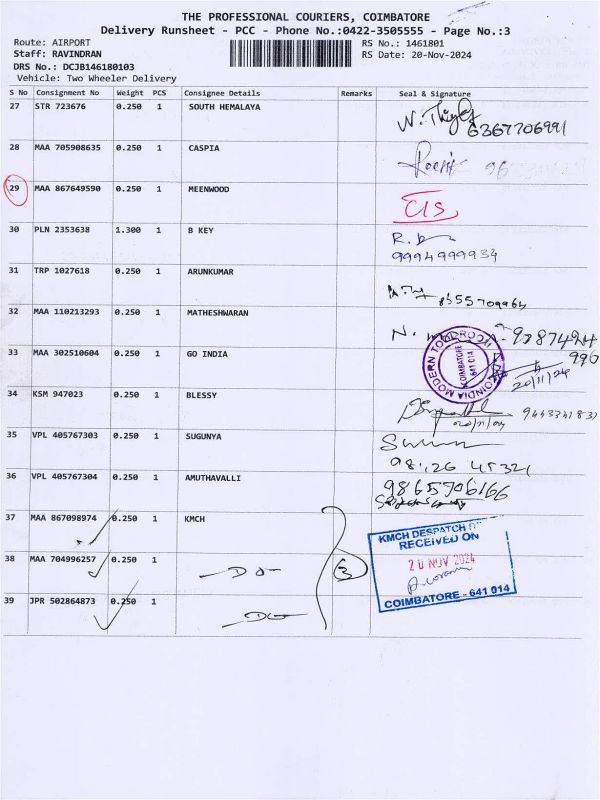 THE PROFESSIONAL COURIERS, COIMBATORE
Delivery Runsheet - PCC - Phone No.:0422-3505555 - Page No.:3
Route: AIRPORT RS No.: 1461801
Staff: RAVINDRAN RS Date: 20-Nov-2024
DRS No.: DCJB146180103
Vehicle: Two Wheeler Delivery
S No Consignment No Weight PCS Consignee Details Remarks Seal & Signature
27 STR 723676 0.250 1 SOUTH HEMALAYA
6367706991
28 MAA 705908635 0.250 1 CASPIA
29 MAA 867649590 0.250 1 MEENWOOD
CIS
30 PLN 2353638 1.300 1 B KEY
9994999934
31 TRP 1027618 0.250 1 ARUNKUMAR
8355709964
32 MAA 110213293 0.250 1 MATHESHWARAN
33 MAA 302510604 0.250 1 GO INDIA
COIMBATORE
641 014
20/11/24
34 KSM 947023 0.250 1 BLESSY
35 VPL 405767303 0.250 1 SUGUNYA
98126 45321
36 VPL 405767304 0.250 1 AMUTHAVALLI
9865706166
37 MAA 867098974 0.250 1 KMCH
38 MAA 704996257 0.250 1
- Do -
3
39 JPR 502864873 0.250 1
- Do -
KMCH DESPATCH
RECEIVED ON
20 NOV 2024
COIMBATORE - 641 014